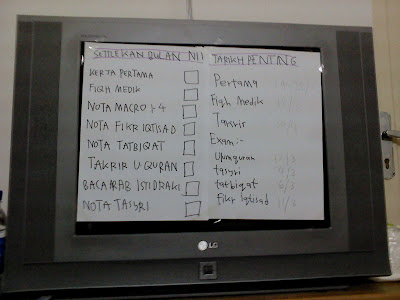 SETTLEKAN BULAN NI!
KERTA PERTAMA
FIQH MEDIK
NOTA MACRO 1-4
NOTA FIKR IQTISAD
NOTA TATBIQAT
TAKRIR U.QURAN
BACA ARAB ISTIDRAKI
NOTA TASYRI
TARIKH PENTING
Pertama
Fiqh Medik
Takrir
Exam:-
Ulumquran
tasyri 4/3
tatbiqat 6/3
Fikr Iqtisad
LG